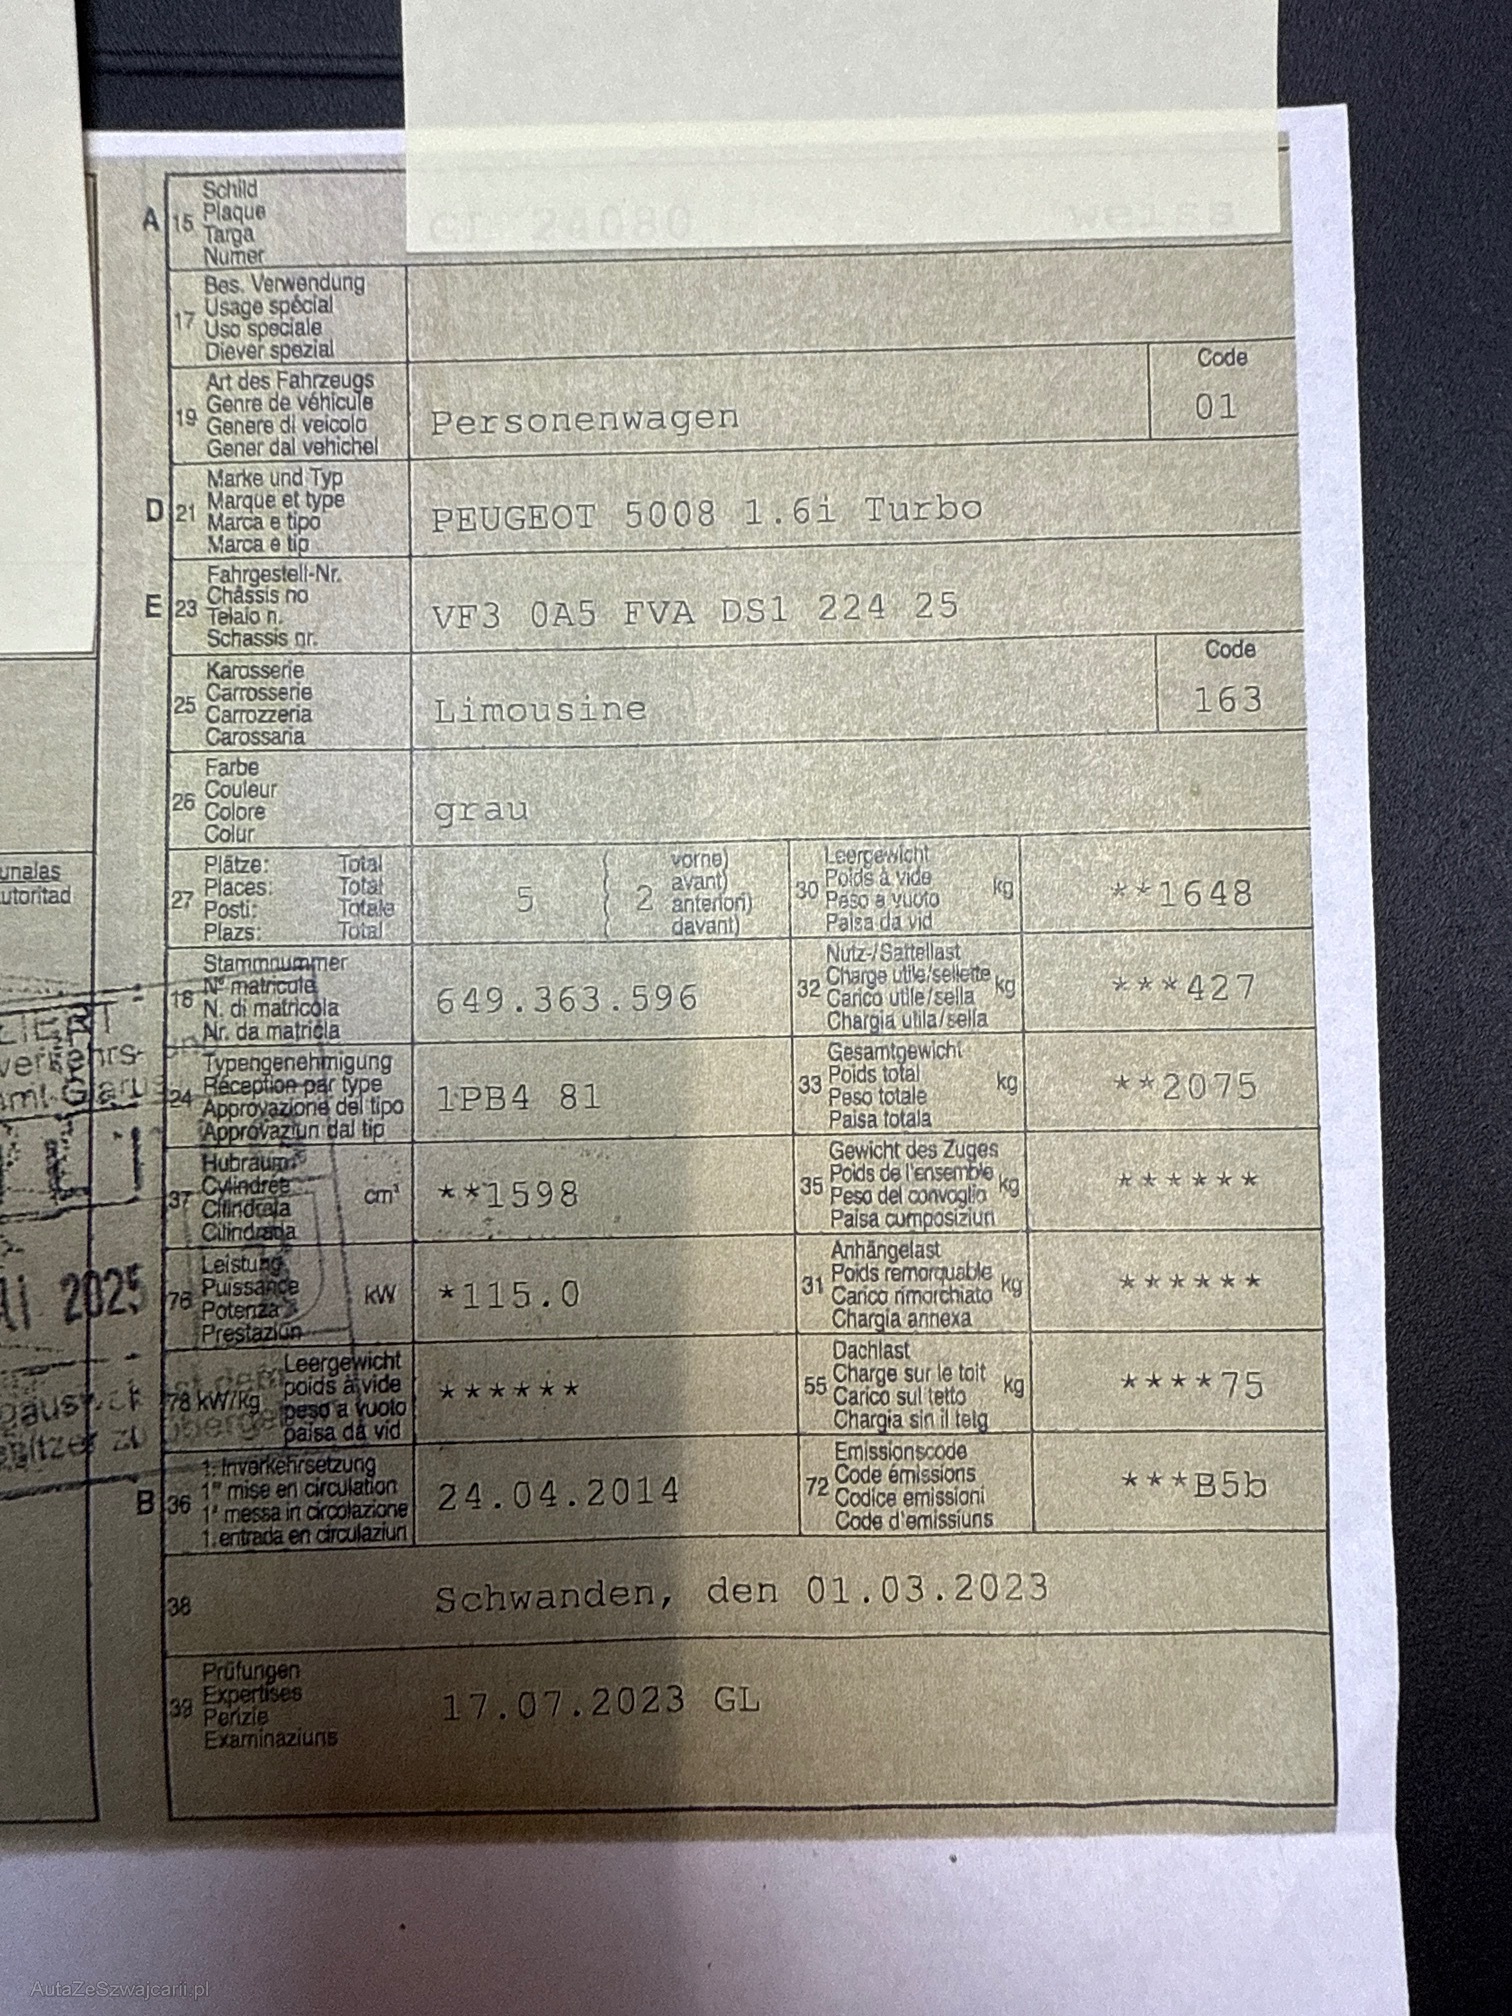 A 15 Schild
Plaque
Targa
Numer
17 Bes. Verwendung
Usage spécial
Uso speciale
Diever spezial
19 Art des Fahrzeugs
Genre de véhicule
Genere di veicolo
Gener dal vehichel
Personenwagen
Code
01
D 21 Marke und Typ
Marque et type
Marca e tipo
Marca e tip
PEUGEOT 5008 1.6i Turbo
E 23 Fahrgestell-Nr.
Châssis no
Telaio n.
Schassis nr.
VF3 0A5 FVA DS1 224 25
25 Karosserie
Carrosserie
Carrozzeria
Carossaria
Limousine
Code
163
26 Farbe
Couleur
Colore
Colur
grau
27 Plätze: Total
Places: Total
Posti: Totale
Plazs: Total
5
2
vorne)
avant)
anteriori)
davant)
30 Leergewicht
Poids à vide
Peso a vuoto
Paisa da vid
kg
**1648
18 Stammnummer
N° matricule
N. di matricola
Nr. da matricla
649.363.596
32 Nutz-/Sattellast
Charge utile/sellette
Carico utile/sella
Chargia utila/sella
kg
***427
24 Typengenehmigung
Réception par type
Approvazione del tipo
Approvaziun dal tip
1PB4 81
33 Gesamtgewicht
Poids total
Peso totale
Paisa totala
kg
**2075
37 Hubraum
Cylindrée
Cilindrata
Cilindrada
cm³
**1598
35 Gewicht des Zuges
Poids de l'ensemble
Peso del convoglio
Paisa cumposiziun
kg
******
76 Leistung
Puissance
Potenza
Prestaziun
kW
*115.0
31 Anhängelast
Poids remorquable
Carico rimorchiato
Chargia annexa
kg
******
78 kW/kg
Leergewicht
poids à vide
peso a vuoto
paisa da vid
******
55 Dachlast
Charge sur le toit
Carico sul tetto
Chargia sin il tetg
kg
****75
B 36 1. Inverkehrsetzung
1re mise en circulation
1a messa in circolazione
1. entrada en circulaziun
24.04.2014
72 Emissionscode
Code émissions
Codice emissioni
Code d'emissiuns
***B5b
38
Schwanden, den 01.03.2023
39 Prüfungen
Expertises
Perizie
Examinaziuns
17.07.2023 GL
2025
AutaZeSzwajcarii.pl